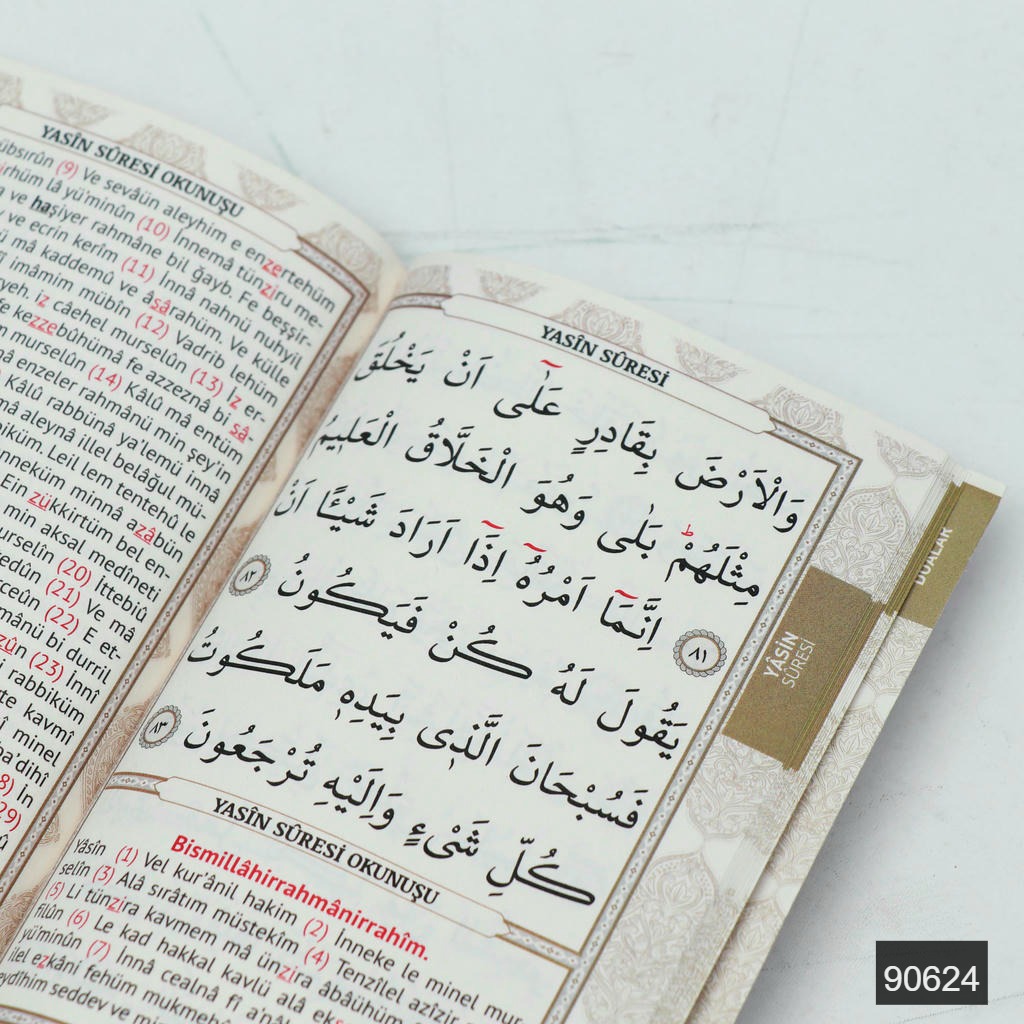 YASİN SÛRESİ OKUNUŞU
übsırûn (9) Ve sevâün aleyhim e enzertehüm
lâ yü'minûn (10) İnnemâ tünziru me-
ve haşiyer rahmâne bil ğayb. Fe beşşir-
ve ecrin kerîm (11) İnnâ nahnü nuhyil
mâ kaddemû ve âsârahüm. Ve külle
imâmim mübîn (12) Vadrib lehüm
iz câehel murselûn (13) İz er-
kezzebûhümâ fe azzeznâ bi sâ-
murselûn (14) Kâlû mâ entüm
enzeler rahmânü min şey'in
Kâlû rabbünâ ya'lemü innâ
aleynâ illel belâğul mü-
Leil lem tentehû le
minnâ azâbün
Ein zükkirtüm bel en-
min aksal medîneti
(20) İttebiû
(21) Ve mâ
(22) E et-
bi durril
(23) İnnî
rabbiküm
kavmî
minel
İn
YASİN SÛRESİ
وَالْاَرْضَ بِقَادِرٍ عَلٰٓى اَنْ يَخْلُقَ
مِثْلَهُمْۜ بَلٰى وَهُوَ الْخَلَّاقُ الْعَل۪يمُ
﴿٨١﴾ اِنَّمَٓا اَمْرُهُٓ اِذَٓا اَرَادَ شَيْـًٔا اَنْ
يَقُولَ لَهُ كُنْ فَيَكُونُ ﴿٨٢﴾
فَسُبْحَانَ الَّذ۪ى بِيَدِه۪ مَلَكُوتُ
كُلِّ شَىْءٍ وَاِلَيْهِ تُرْجَعُونَ ﴿٨٣﴾
YASİN SÛRESİ OKUNUŞU
Bismillâhirrahmânirrahîm.
Yâsîn (1) Vel kur'ânil hakim (2) İnneke le minel mur-
selîn (3) Alâ sırâtım müstekîm (4) Tenzîlel azîzir
(5) Li tünzira kavmem mâ ünzira âbâühüm
filûn (6) Le kad hakkal kavlü alâ
yü'minûn (7) İnnâ cealnâ fî
ilel ezkâni fehüm
seddev ve
YÂSİN
SÛRESİ
DUALAR
90624